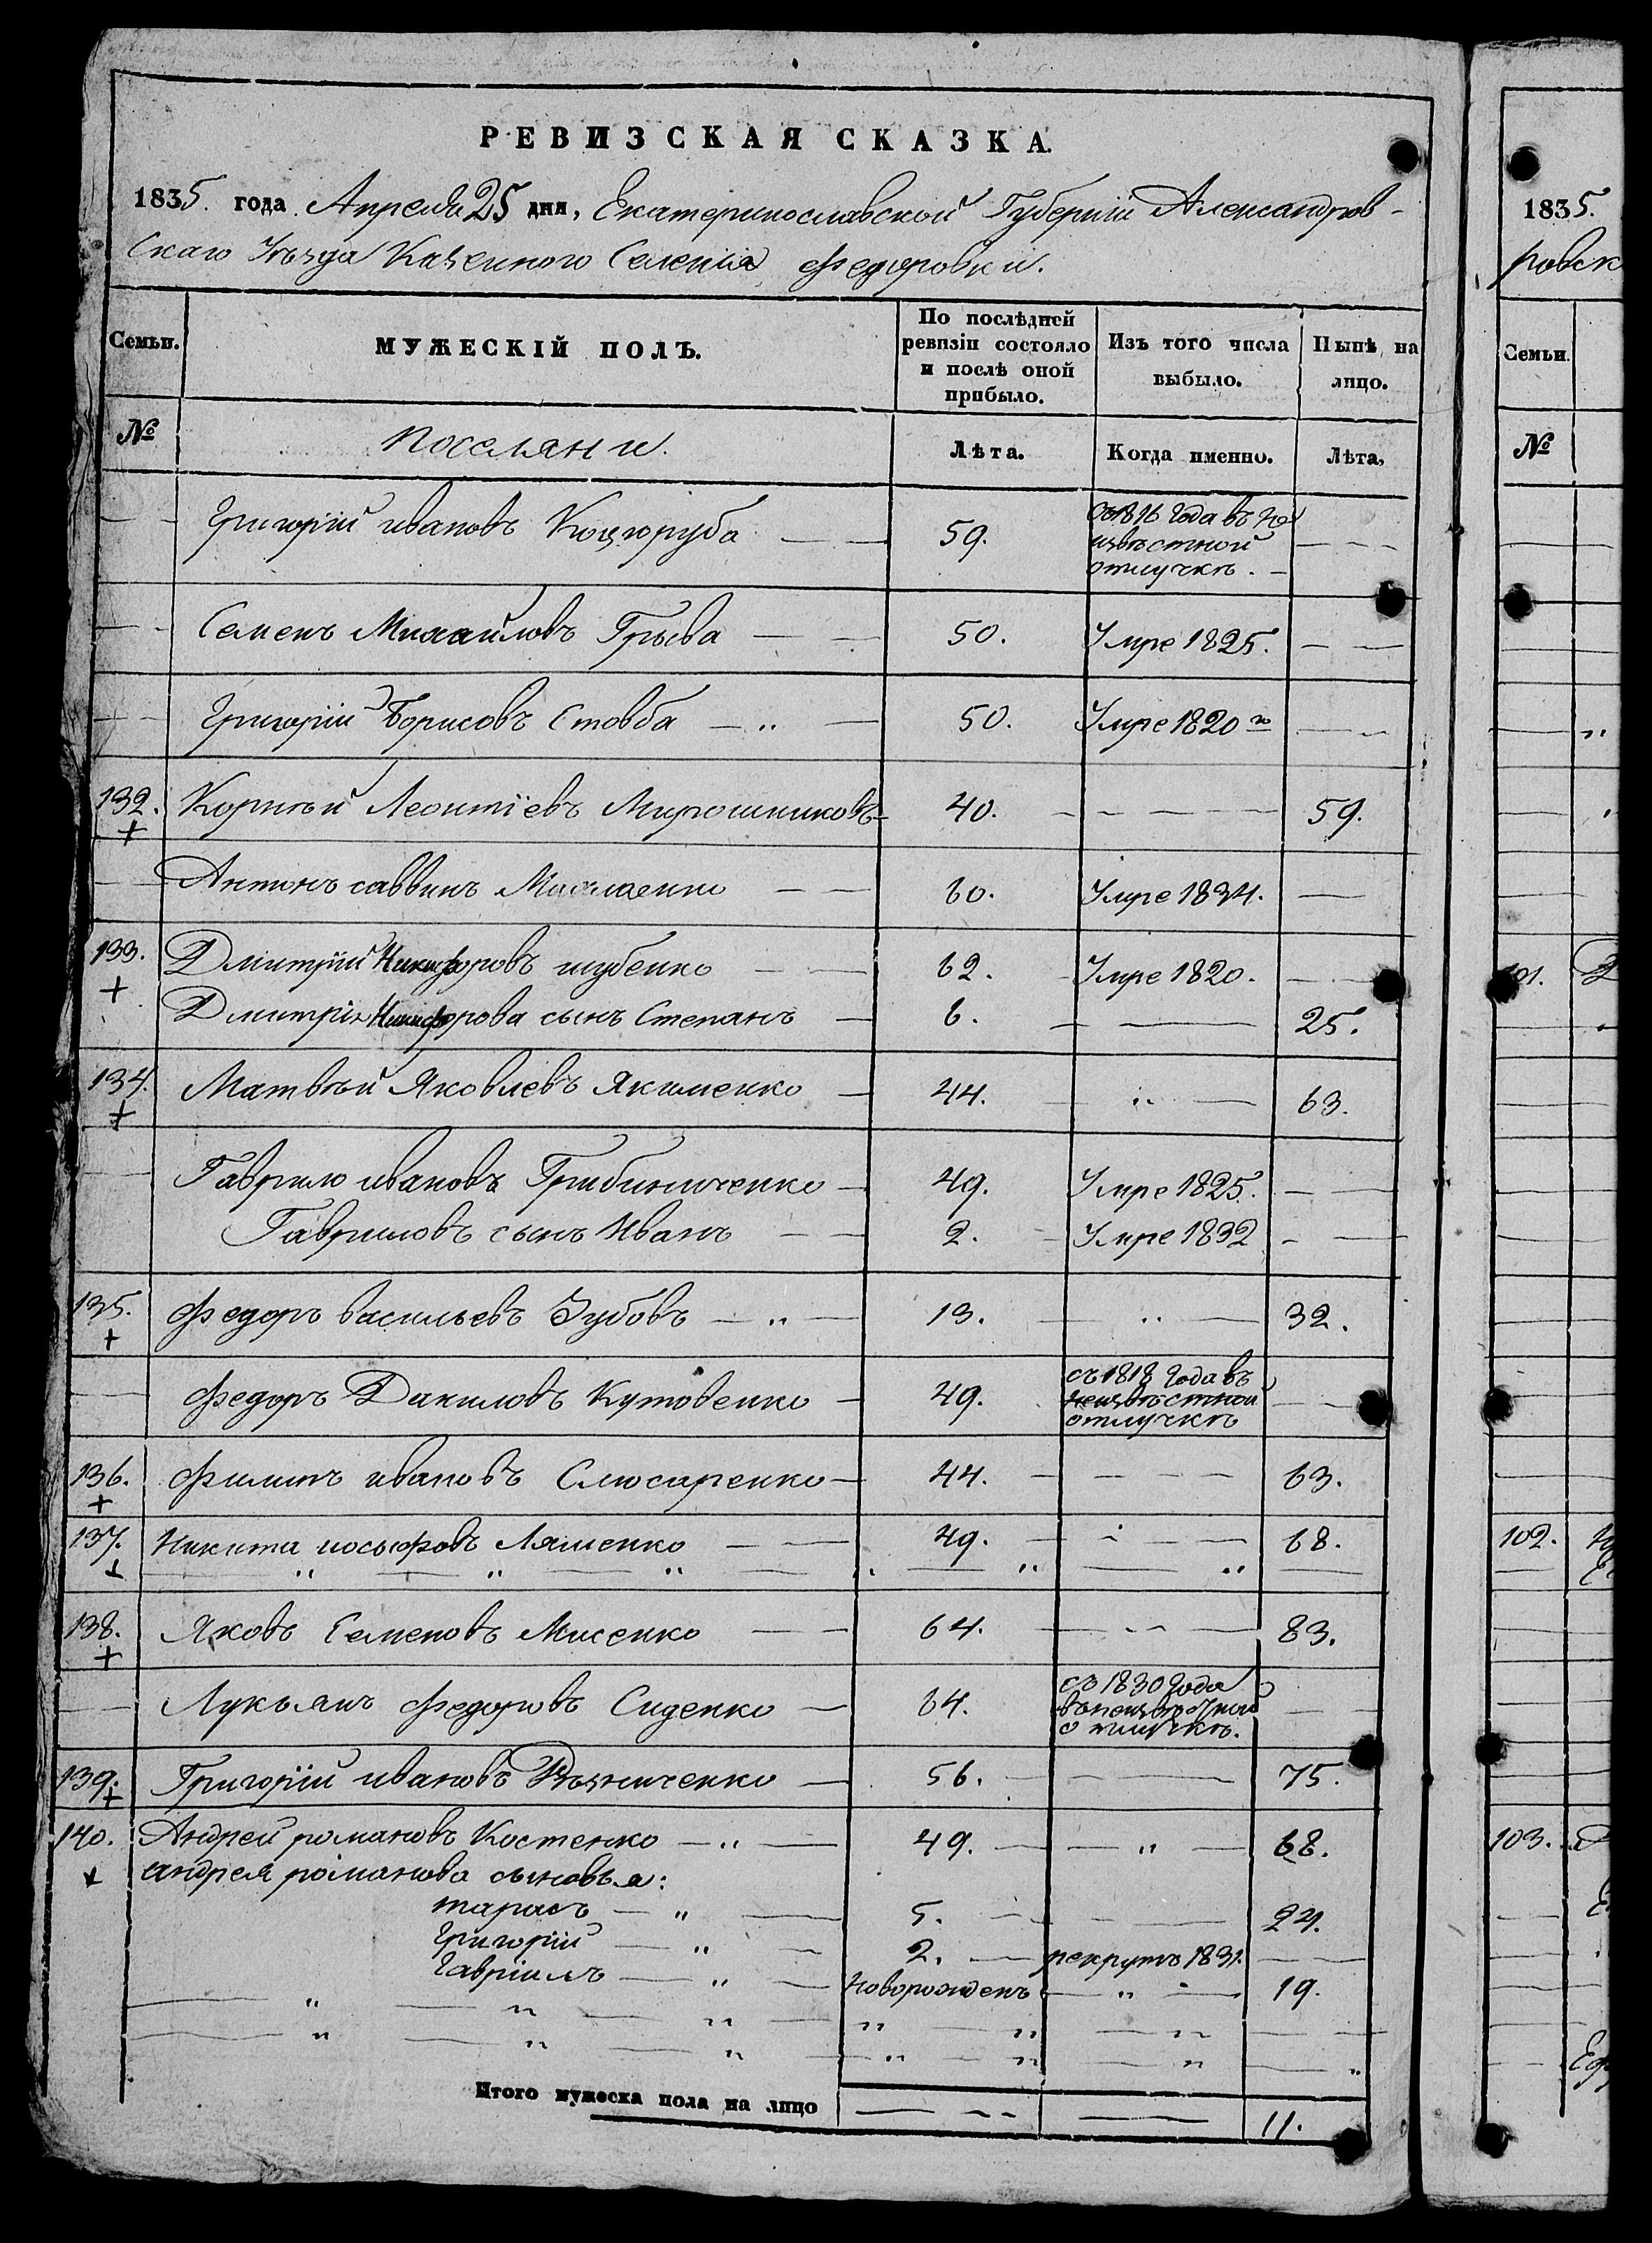 РЕВИЗСКАЯ СКАЗКА.
1835. года Апреля 25 дня, Екатеринославской Губерніи Александров-
скаго Уѣзда Казенного Селенія Федоровки.
Семьи.
МУЖЕСКІЙ ПОЛЪ.
По послѣдней ревизіи состояло и послѣ оной прибыло.
Изъ того числа выбыло.
Нынѣ на лицо.
№
Поселяни.
Лѣта.
Когда именно.
Лѣта,
Григорій ивановъ Коцюруба 59. съ 1816 года въ не
извѣстной
отлучкѣ.
Семенъ Михайловъ Грыва 50. Умре 1825.
Григорій Борисовъ Стовба 50. Умре 1820го
132. Корнѣй Леонтіевъ Мирошниковъ 40. 59.
+
Антонъ саввинъ 60. Умре 1834.
133. Дмитрій Никифоровъ шубенко 62. Умре 1820.
+ Дмитрія Никифорова сынъ Степанъ 6. 25.
134. Матвѣй Яковлевъ Якименко 44. 63.
+
Гаврило ивановъ Грибиниченко 49. Умре 1825.
Гавриловъ сынъ Иванъ 2. Умре 1832
135. Федоръ васильевъ Зубовъ 13. 32.
+
Федоръ Даниловъ Кутовенко 49. съ 1818 года въ
неизвѣстной
отлучкѣ
136. Филипъ ивановъ Слюсаренко 44. 63.
+
137. Никита иосифовъ Ляшенко 49. 68.
+
138. Яковъ Семеновъ Мисенко 64. 83.
+
Лукьянъ Федоровъ Сиденко 64. съ 1830 года
въ неизвѣстной
отлучкѣ.
139. Григорій ивановъ Рѣзниченко 56. 75.
+
140. Андрей романовъ Костенко 49. 68.
+ андрея романова сыновья:
тарасъ 5. 24.
Григорій 2. рекрутъ 1831.
Гавріилъ Новорожденъ 19.
Итого мужеска пола на лицо 11.
1835.
ровск
Семьи.
№
101.
102.
103.